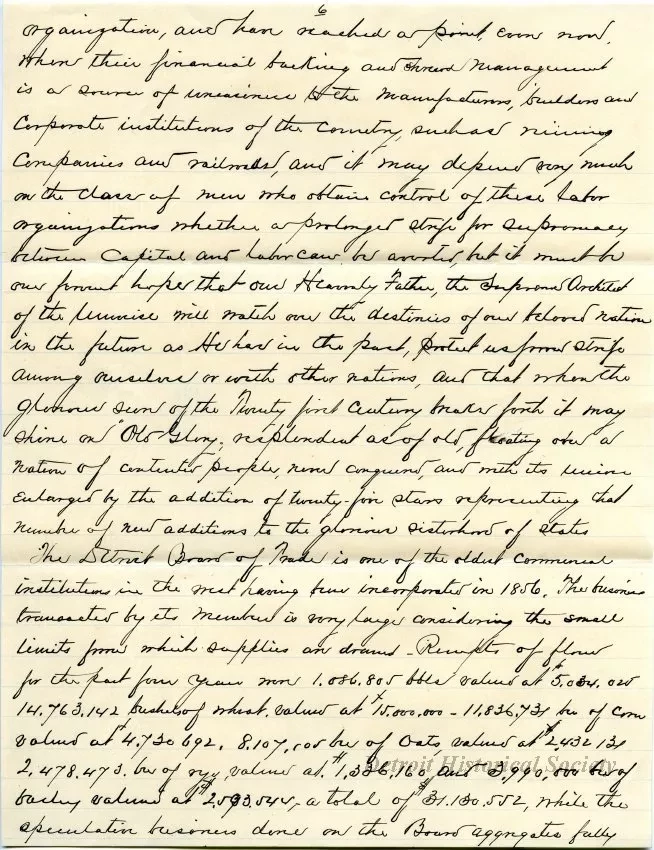 6
organization, and have reached a point, even now,
when their financial backing and shrewd management
is a source of uneasiness to the manufacturers, builders and
Corporate institutions of the Country, such as mining
Companies and railroads, and it may depend very much
on the class of men who obtain control of these labor
organizations whether a prolonged strife for supremacy
between Capital and labor can be averted but it must be
our fervent hope that our Heavenly Father, the Supreme Architect
of the Universe will watch over the destinies of our beloved nation
in the future as He has in the past, protect us from strife
among ourselves or with other nations, and that when the
glorious sun of the Twenty first Century breaks forth it may
shine on "Old Glory", resplendent as of old, floating over a
nation of contented people, never conquered, and with its union
enlarged by the addition of twenty-five stars representing that
number of new additions to the glorious sisterhood of states
The Detroit Board of Trade is one of the oldest commercial
institutions in the west having been incorporated in 1856. The business
transacted by its members is very large considering the small
limits from which supplies are drawn - Receipts of flour
for the past four years were 1.086.805 bbls valued at $5.034.025
14.763.142 bushels of wheat, valued at $10.000.000 - 11,836,731 bu of corn
valued at $4.730 692, 8.107,500 bu of Oats, valued at $2,432 131
2,478.473. bu of rye, valued at $1,336,160 and 3,990,000 bu of
barley valued at $2.593.544, a total of $31.130.552, while the
speculative business done on the Board aggregates fully
Detroit Historical Society